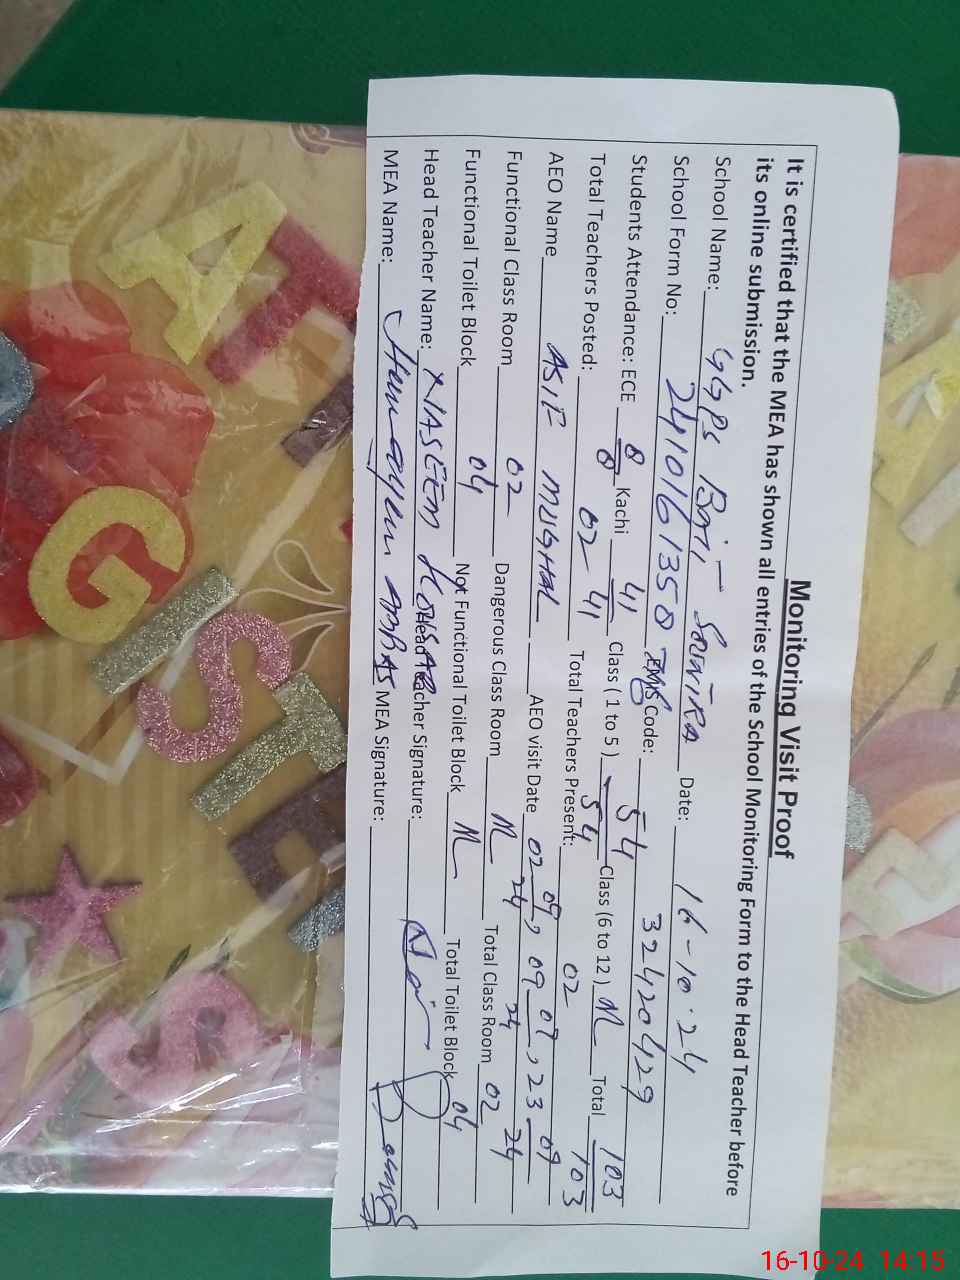 Monitoring Visit Proof
It is certified that the MEA has shown all entries of the School Monitoring Form to the Head Teacher before
its online submission.
School Name: GGPS Date: 16-10-24
School Form No: 2410161358 EMIS Code: 32420429
54
Students Attendance: ECE 8/8 Kachi 41/41 Class (1 to 5) 54 Class (6 to 12) N Total 103/103
Total Teachers Posted: 02 Total Teachers Present: 02
AEO Name ASIF MUGHAL AEO visit Date 02-09-24, 09-07-24, 23-09-24
Functional Class Room 02 Dangerous Class Room N Total Class Room 02
Functional Toilet Block 04 Not Functional Toilet Block N Total Toilet Block 04
Head Teacher Name: KOUSAR Head Teacher Signature:
MEA Name: Humayun ABBAS MEA Signature:
A T
G I S T E
S
16-10-24 14:15